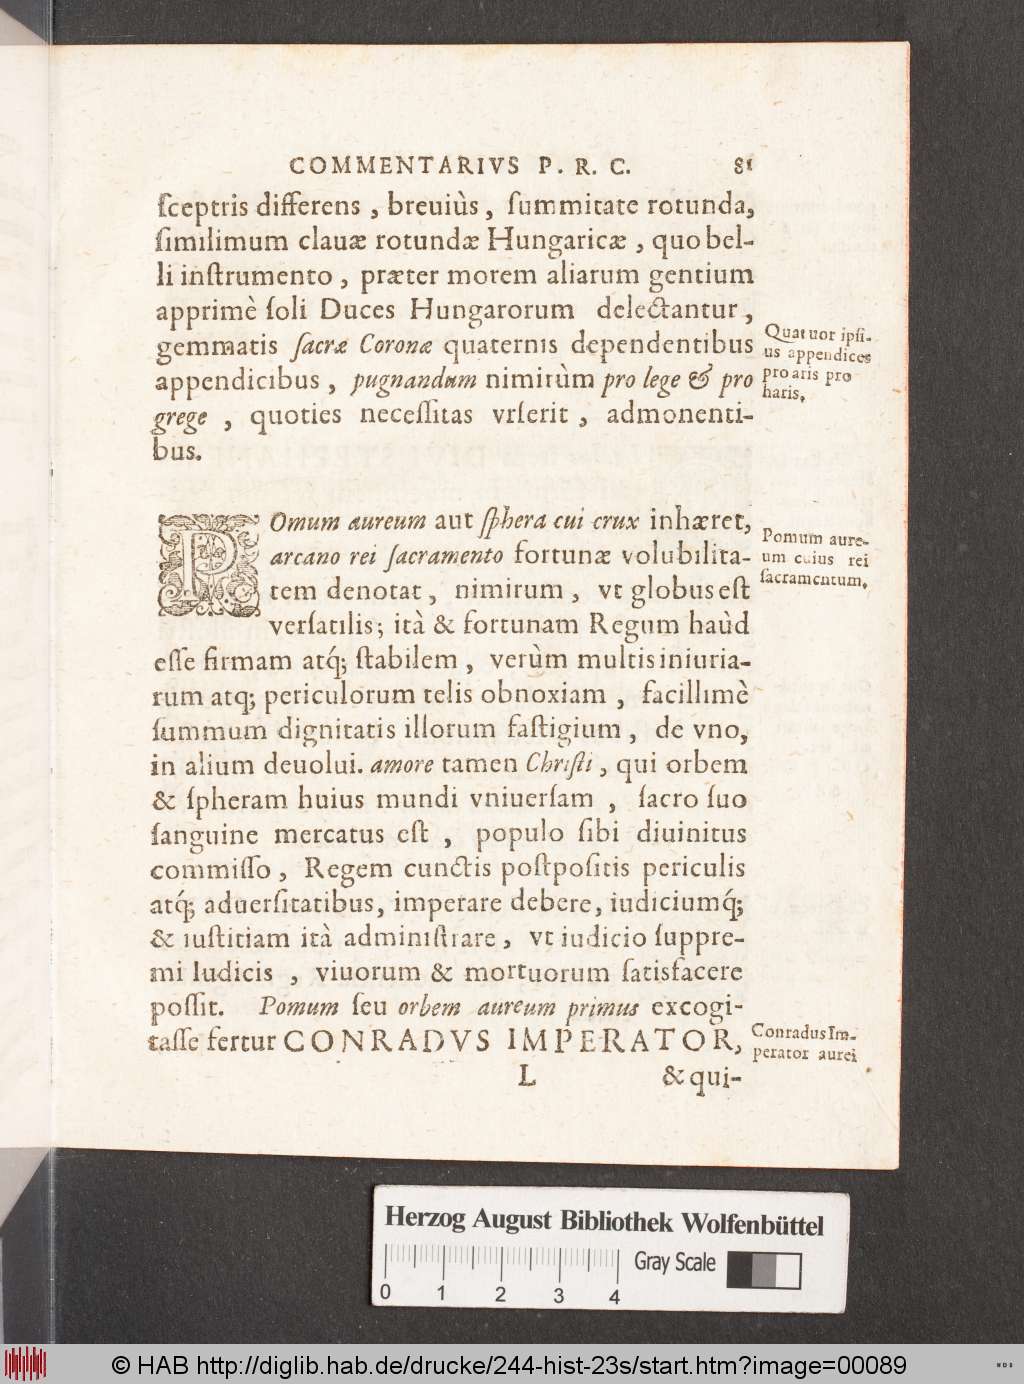 COMMENTARIVS P. R. C. 81
ſceptris differens, breuiùs, ſummitate rotunda,
ſimilimum clauæ rotundæ Hungaricæ, quo bel-
li inſtrumento, præter morem aliarum gentium
apprimè ſoli Duces Hungarorum delectantur,
gemmatis ſacræ Coronæ quaternis dependentibus
appendicibus, pugnandum nimirùm pro lege & pro
grege, quoties neceſſitas vrſerit, admonenti-
bus.
Quatuor ipſi-
us appendices
pro aris pro
haris.
POmum aureum aut ſphera cui crux inhæret,
arcano rei ſacramento fortunæ volubilita-
tem denotat, nimirum, vt globus eſt
verſatilis; ità & fortunam Regum haùd
eſſe firmam atq́; ſtabilem, verùm multis iniuria-
rum atq; periculorum telis obnoxiam, facillimè
ſummum dignitatis illorum faſtigium, de vno,
in alium deuolui. amore tamen Chriſti, qui orbem
& ſpheram huius mundi vniuerſam, ſacro ſuo
ſanguine mercatus eſt, populo ſibi diuinitus
commiſſo, Regem cunctis poſtpoſitis periculis
atq́; aduerſitatibus, imperare debere, iudiciumq́;
& iuſtitiam ità adminiſtrare, vt iudicio ſuppre-
mi Iudicis, viuorum & mortuorum ſatisfacere
poſſit. Pomum ſeu orbem aureum primus excogi-
taſſe fertur CONRADVS IMPERATOR,
Pomum aure-
um cuius rei
ſacramentum.
Conradus Im-
perator aurei
L &qui-
Herzog August Bibliothek Wolfenbüttel
Gray Scale
0 1 2 3 4
© HAB http://diglib.hab.de/drucke/244-hist-23s/start.htm?image=00089